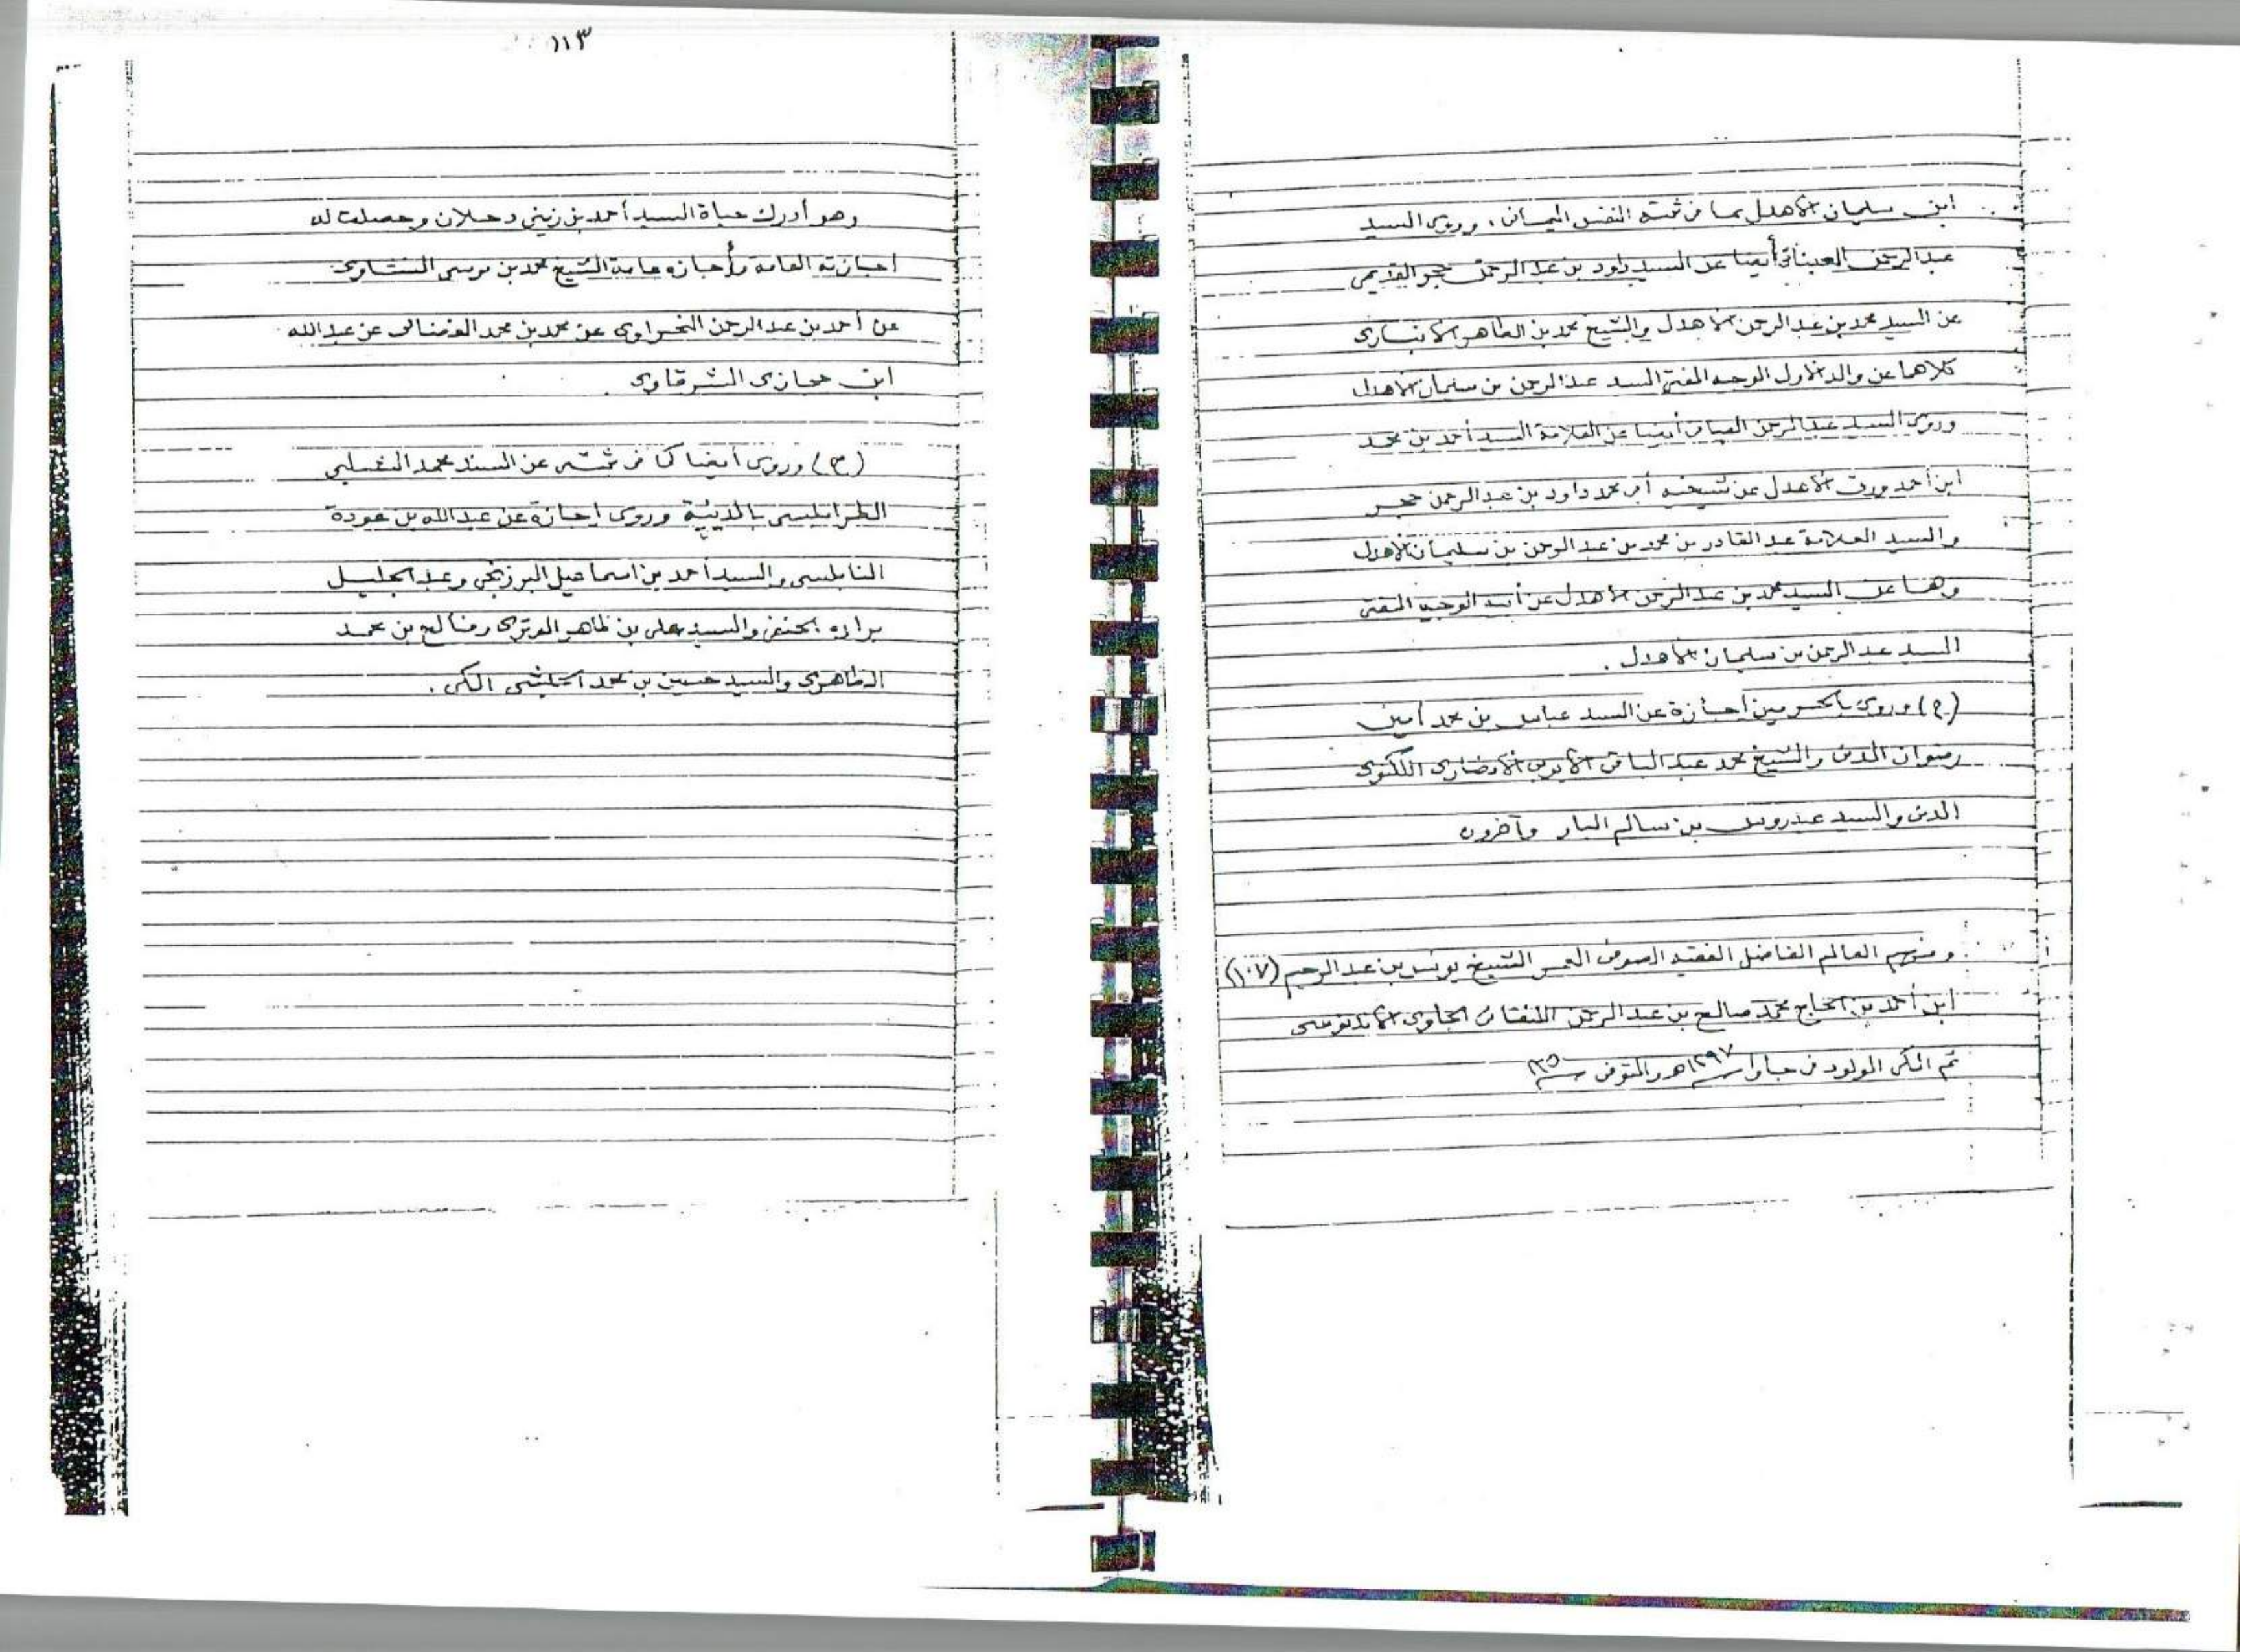 ابن سليمان الأهدل بما في ثبته النفس اليماني، وروى السيد
عبدالرحمن أيضا عن السيد داود بن عبدالرحمن حجر القديمي
عن السيد محمد بن عبدالرحمن الأهدل والشيخ محمد بن الطاهر الأنباري
كلاهما عن والد الأول الوجيه المفتي السيد عبدالرحمن بن سليمان الأهدل
وروى السيد عبدالرحمن أيضا عن العلامة السيد أحمد بن محمد
ابن أحمد ورق الأهدل عن شيخيه أبي محمد داود بن عبدالرحمن حجر
والسيد العلامة عبدالقادر بن محمد بن عبدالرحمن بن سليمان الأهدل
وهما عن السيد محمد بن عبدالرحمن الأهدل عن أبيه الوجيه المفتي
السيد عبدالرحمن بن سليمان الأهدل .
(ح) وروى بالحرمين إجازة عن السيد عباس بن محمد أمين
رضوان المدني والشيخ محمد عبدالباقي الأيوبي الأنصاري اللكنوي
المدني والسيد عيدروس بن سالم البار وآخرون
ومنهم العالم الفاضل الفقيه الصوفي المعمر الشيخ يونس بن عبدالرحيم (١٠٧)
ابن أحمد بن الحاج محمد صالح بن عبدالرحمن الجاوي الأندنوسي
ثم المكي المولود في جاوا ١٢٩٧هـ والمتوفى
١١٣
وهو أدرك حياة السيد أحمد بن زيني دحلان وحصلت له
إجازته العامة وأجازه عامة الشيخ محمد بن موسى المنشاوي
عن أحمد بن عبدالرحمن النحراوي عن محمد بن محمد الفضالي عن عبدالله
ابن حجازي الشرقاوي .
(ح) وروى أيضا كما في ثبته عن السيد محمد
الطرابلسي بالمدينة وروى إجازة عن عبدالله بن عودة
النابلسي والسيد أحمد بن اسماعيل البرزنجي وعبدالجليل
براده الحنفي والسيد علي بن ظاهر الوتري وفالح بن محمد
الظاهري والسيد حسين بن محمد الحبشي المكي .